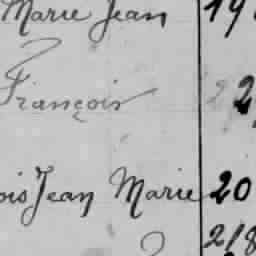 Marie Jean 19
François 2
ois Jean Marie 20
218